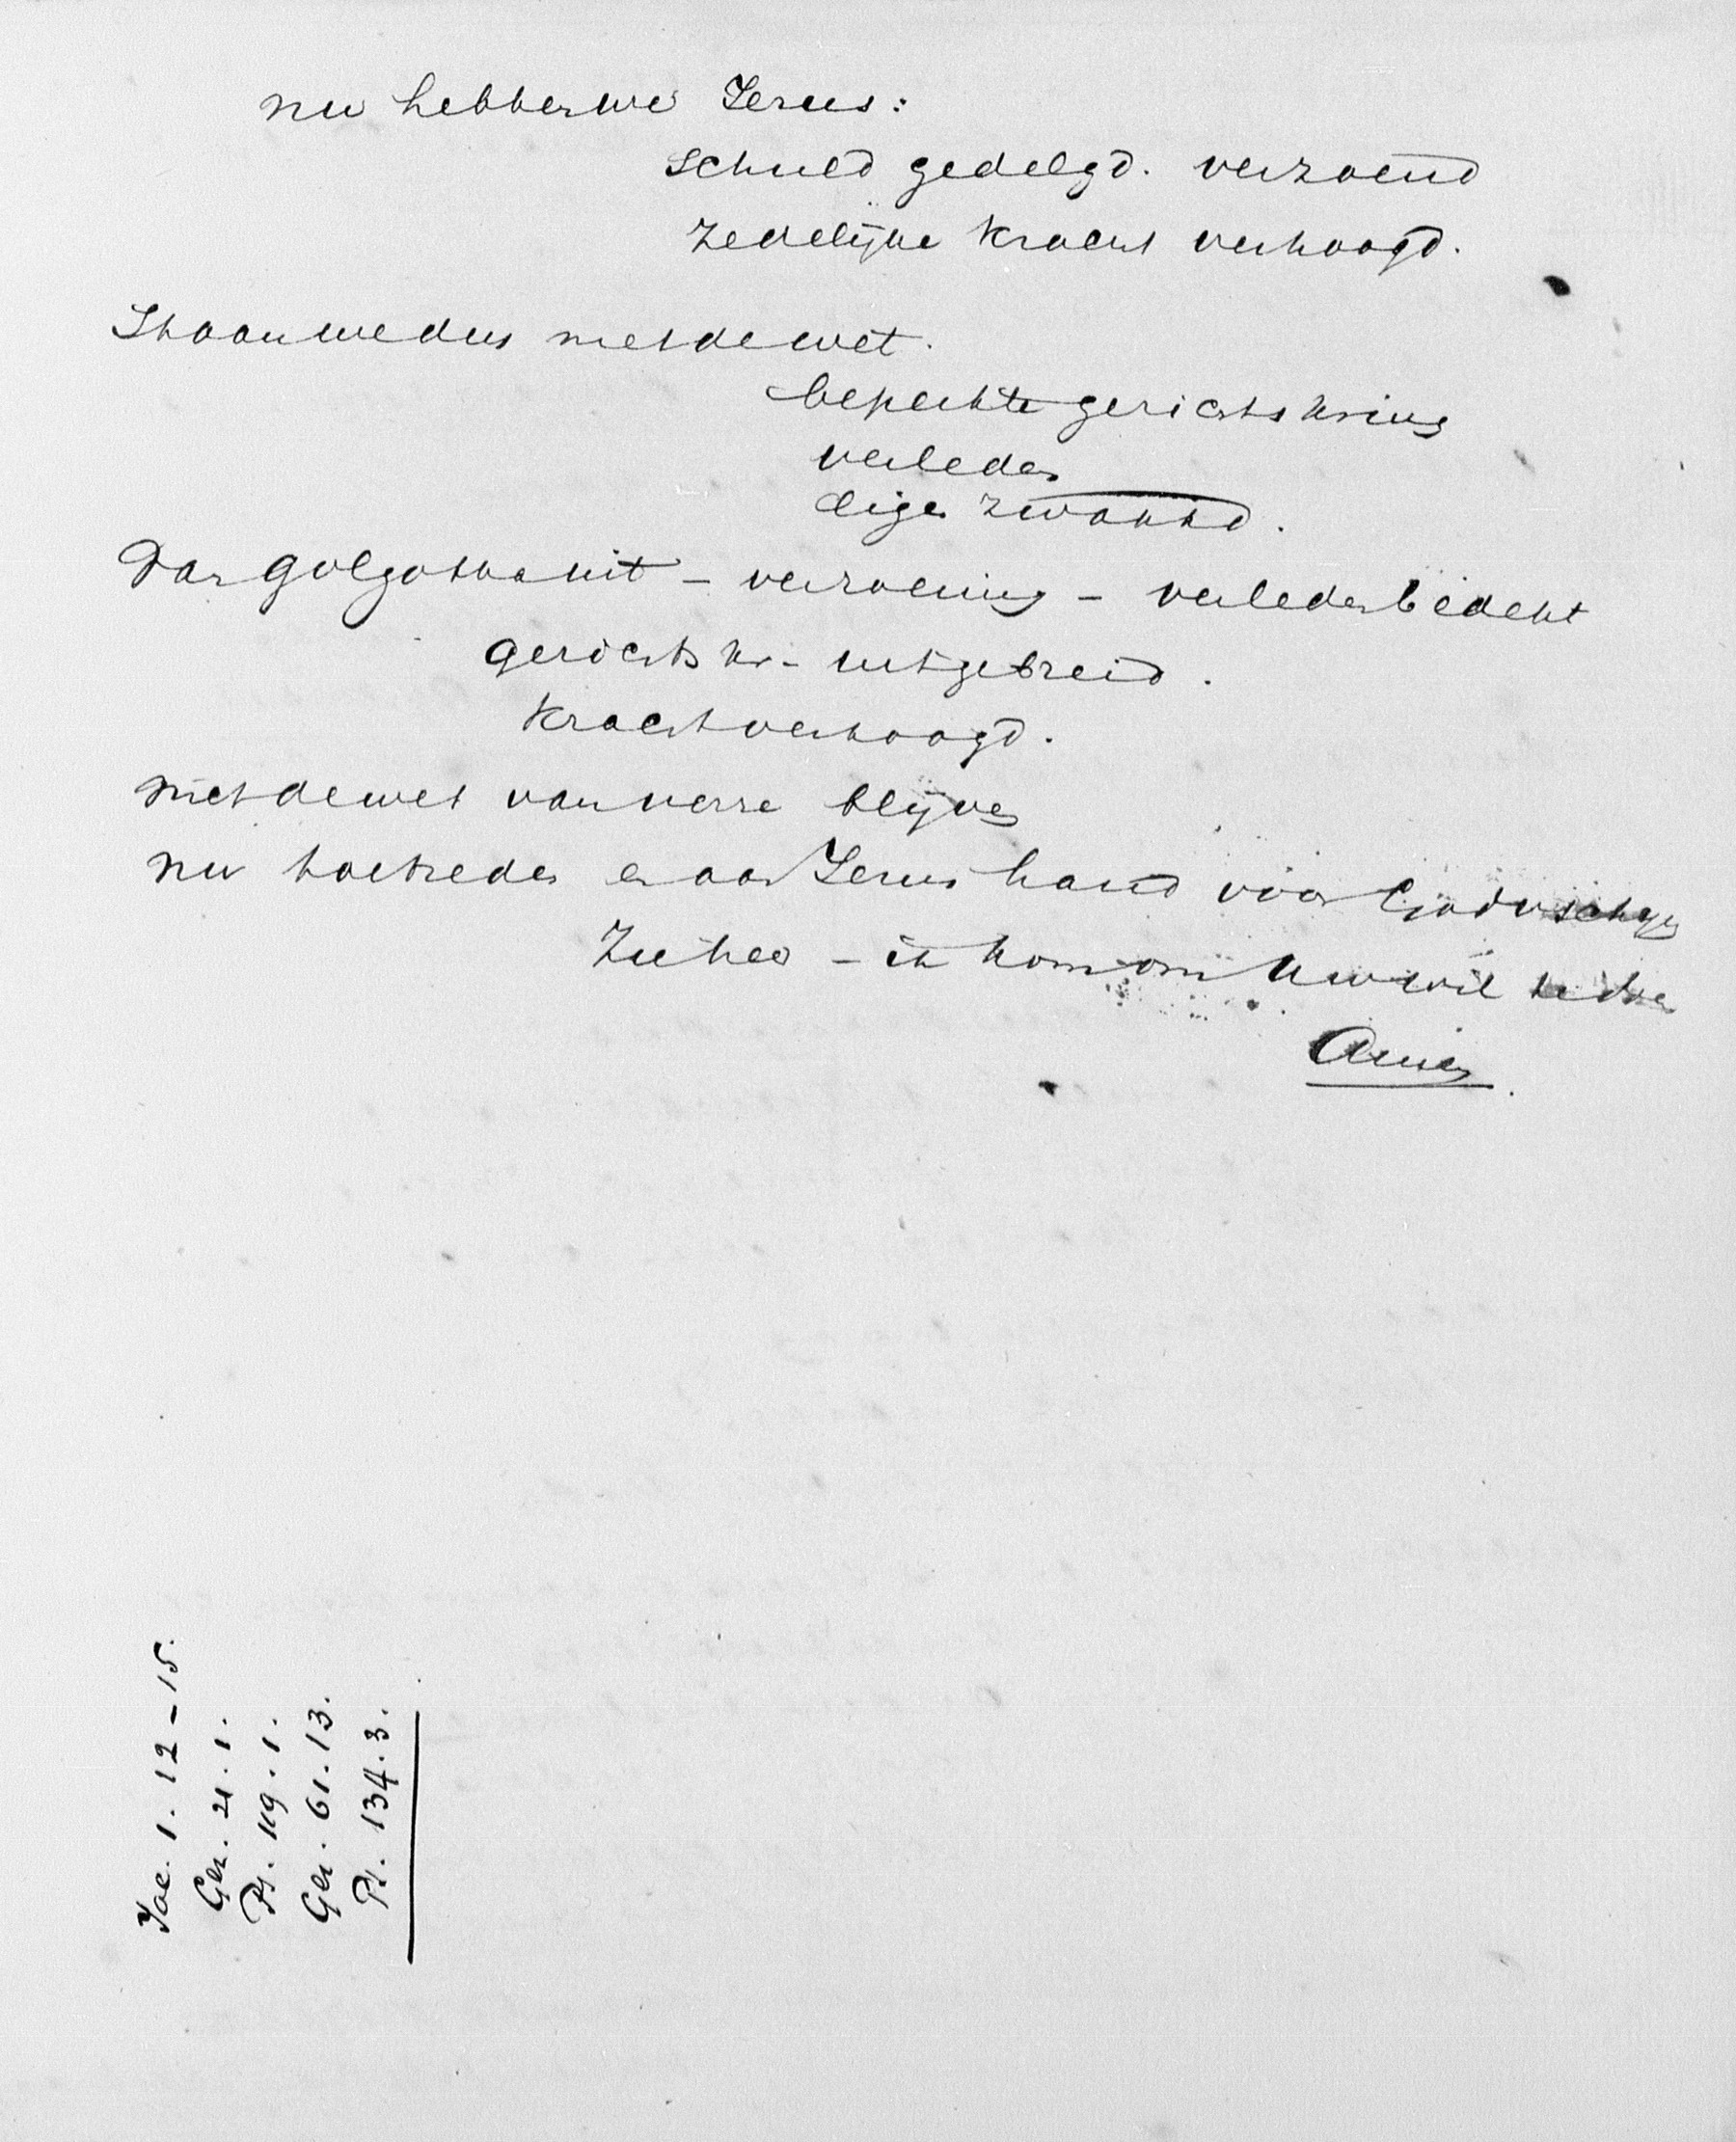 nu hebben we Jezus:
schuld gedelgd. verzoend
zedelijke kracht verhoogd.
Staan we dus met de wet.
beperkte gerichtskring
verleden
eigen zwakhd.
Dan Golgotha uit – verzoening – verleden bedekt
gerichtskr – uitgebreid.
kracht verhoogd.
met de wet van verre blijven
nu toetreden en aan Jezus hand vóór God
Zie hier – ik kom om Uw wil te doen
Amen.
Jac. 1. 12 – 15.
Gez. 21. 1.
Ps. 119. 1.
Gez. 61. 13.
Ps. 134. 3.